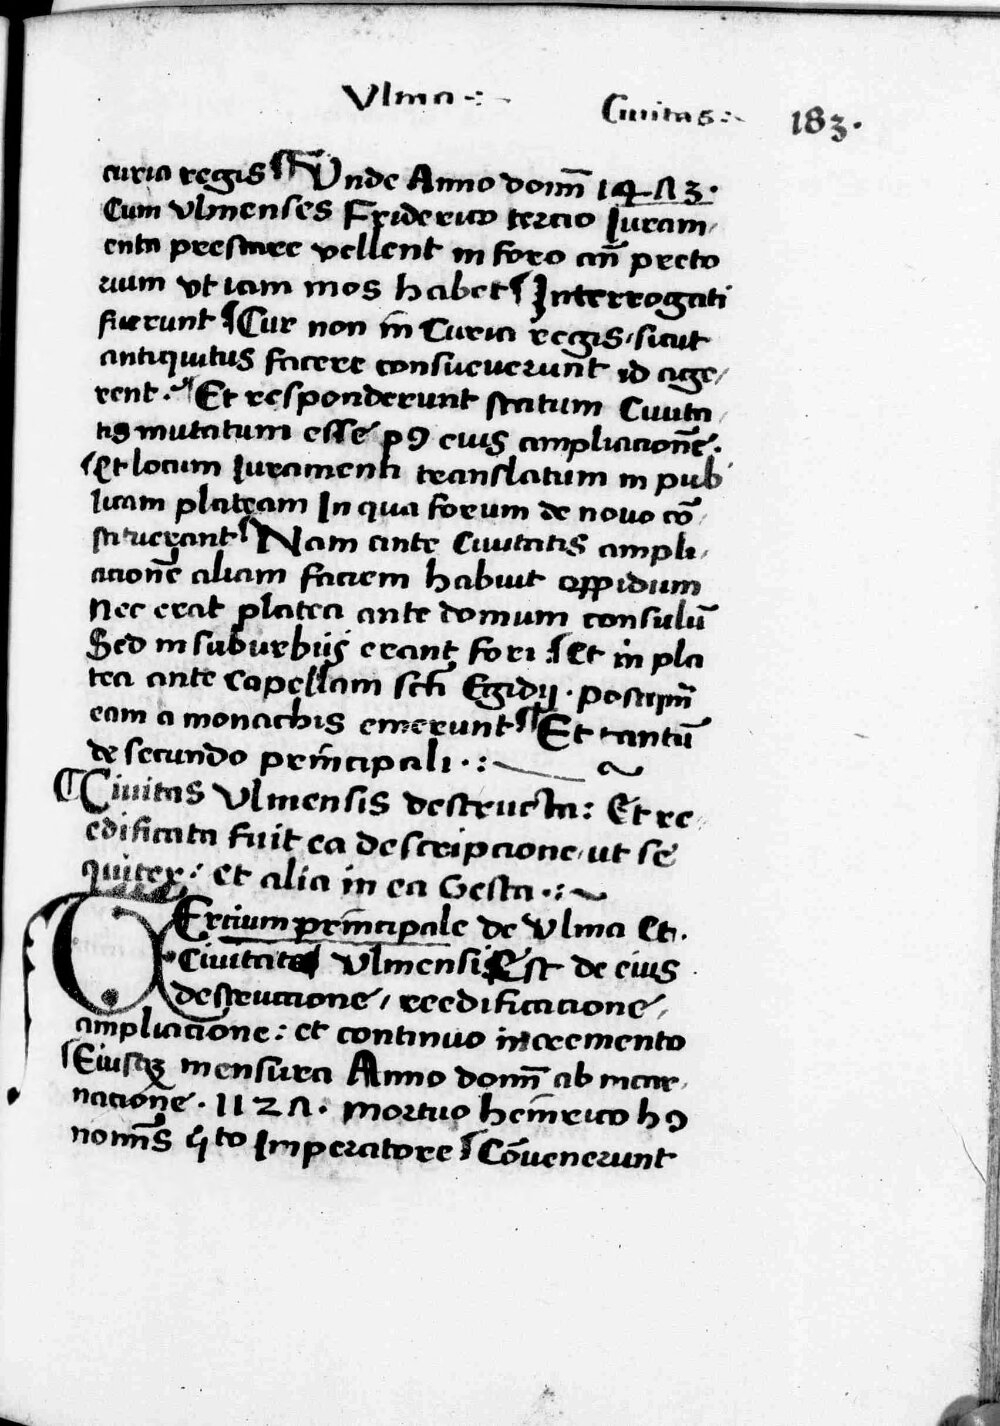 Vlma ·:
Ciuitas:· 183.
curia regis ¶ Vnde Anno domī 1473.
Cum vlmenses Friderico tercio Iuram
enta prestare vellent in foro añ preto
rium vt iam mos habet ¶ Interrogati
fuerunt ¶ Cur non in Curia regis, sicut
antiquitus facere consueuerunt id age,
rent. ¶ Et responderunt statum Ciuita,
tis mutatum esse pꝰ eius ampliacionē.
¶ Et locum Iuramenti translatum in pub
licam plateam In qua forum de nouo cō,
stituerant ¶ Nam ante Ciuitatis ampli,
acionē aliam faciem habuit oppidum
Nec erat platea ante domum consulū
Sed in suburbijs erant fori ¶ Et in pla
tea ante Capellam scti Egidij. postqm̄
eam a monachis emerunt ¶ Et tantū
de secundo prīncipali ·:
¶ Ciuitas Vlmensis destructa: Et re,
edificata fuit ea descripcione, ut se
quiter: et alia in ea Gesta ·:~
TErcium prīncipale de Vlma Et.
Ciuitate Vlmensi Est de eius
destruccione, reedificacione,
ampliacione: et continuo incremento
¶ Eiusqꝫ mensura Anno domī ab incar,
nacione. 1127. mortuo heinrico hꝰ
nomīs qito Imperatore ¶ Cōuenerunt